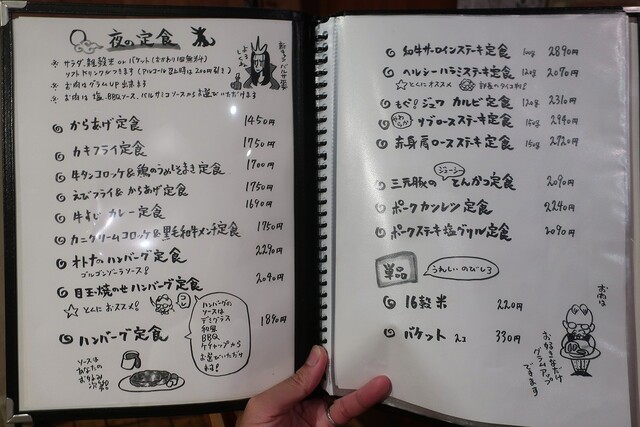 夜の定食
※ サラダ、雑穀 or バケット(おかわり1回無料)
ソフトドリンクがつきます(アルコール
※ お肉はグラムUP出来ます
※ お肉は塩、BBQソース、バルサミコソースからお選びいただけます
からあげ定食 1450円
カキフライ定食 1750円
牛タンコロッケ&鶏のうめしそまき定食 1700円
えびフライ&からあげ定食 1750円
牛すじカレー定食 1640円
カニクリームコロッケ&黒毛和牛メンチ定食 1750円
オトナのハンバーグ定食 2290円
ゴルゴンゾーラソース!
目玉焼のせハンバーグ定食 2040円
☆とくにおススメ!
コレ
ハンバーグ定食 1890円
ハンバーグの
ソースは
デミグラス
和風
BBQ
ケチャップから
お選びいただけ
ます!
ソースは
あなたの
お好み
次第!
和牛サーロインステーキ定食 2890円
ヘルシーハラミステーキ定食 120g 2090円
☆とくにオススメ
もぐ!ジュワ カルビ定食 120g 2310円
やわらか リブロースステーキ定食 150g 2940円
赤身肩ロースステーキ定食 150g 2720円
三元豚の ジューシー とんかつ定食 2090円
ポークカツレツ定食 2240円
ポークステーキ塩グリル定食 2090円
単品
うれしいのびしろ
16穀米 220円
バケット 2コ 330円
お肉は
お好きなだけ
グラムアップ
できます